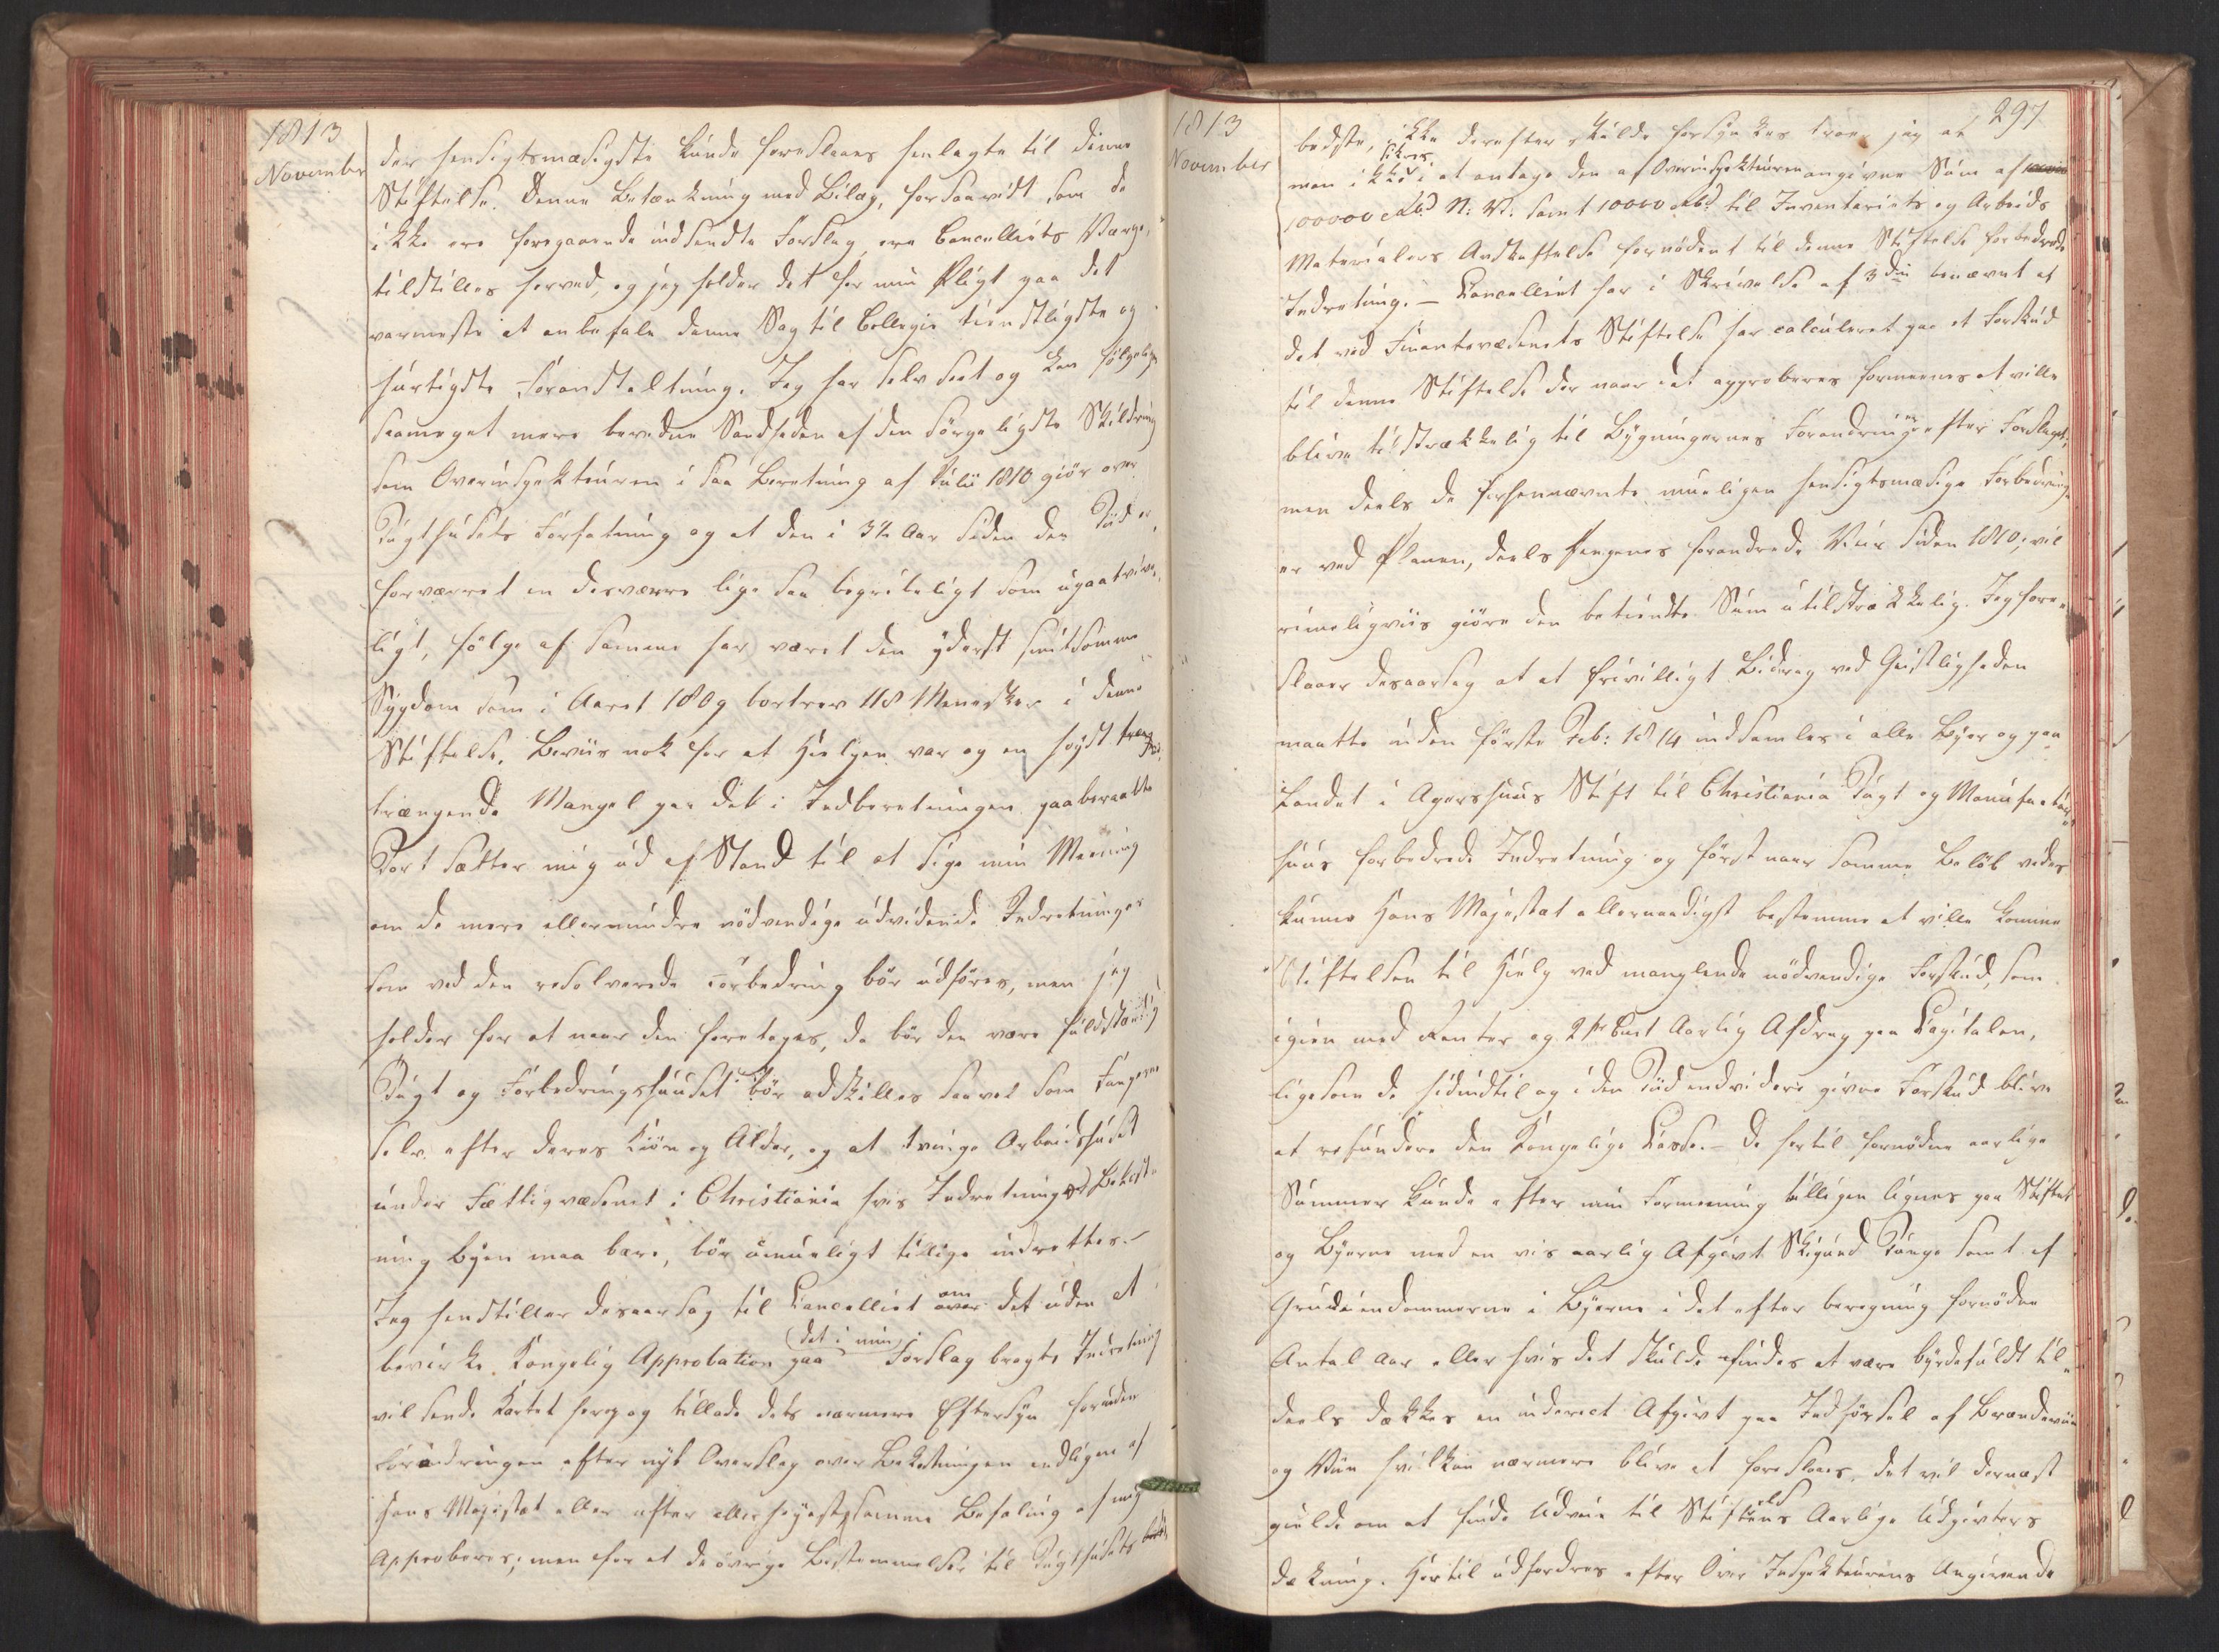 1813
November
der hensigtsmæsigste kunde foreslaaes henlagte til denne
Stiftelse. Denne Betænkning med Bilag, forsaavidt som de
ikke ere foregaaende indsendte Forslag, ere Cancelliets
tilstilles herved, og jeg holder det for min Pligt paa det
varmeste at anbefale denne Sag til Collegie tienstligste og
hurtigste Foranstaltning. Jeg har selv seet og kan følgelig
saameget mere bevidne Sandheden af den sørgeligste Skildring
som Overinspekteuren i saa Beretning af Julii 1810 giør over
Tugthusets Forfatning og at den i 3½ Aar siden den Tiid er
forværret en desværre lige saa begribeligt som upaatvivle-
ligt, følge af samme har været den yderst smitsomme
Sygdom som i Aaret 1809 bortrev 118 Mennesker i denne
Stiftelse. Beviis nok for at Hielpen var og er høyst
trængende Mangel paa det i Indberetningen paaberaabte
Kort sætter mig ud af Stand til at sige min Meening
om de mere eller mindre nødvendige udvidende Indretninger
som ved den resolverede Forbedring bør udføres, men jeg
holder for at naar den foretages, da bør den være fuldstændig
Tugt og Forbedringshuuset bør adskilles saavel som Fangerne
selv efter deres Kiøn og Alder, og at tvinge Arbeidshuset
under Fattigvæsenet i Christiania hvis Indretning og Bekost-
ning Byen maa bære, bør umueligt tillige indrettes.
Jeg henstiller desaarsag til Cancelliet om det uden at
bevirke Kongelig Approbation paa (det i min) Forslag bragte Indretning
vil sende Kortet herop og tillade dets nærmere Eftersyn forinden
Forandringen efter nyt Overslag over Bekostningen endligen af
Hans Majestæt eller efter allerhøyestsamme Befaling af mig
Approberes; men for at de øvrige Bestemmelser til Tugthusets
1813
November
297
bedste, ikke derefter skulde forsynkes troer jeg at
man ikke feiler i at antage den af Overinspekteuren angivne Sum af
100000 Rbd N: V: samt 10000 Rbd til Inventariets og Arbeids
Materialers Anskaffelse fornødent til denne Stiftelse forbedrede
Indretning. – Cancelliet har i Skrivelse af 3die benævnt at
det ved Finantsvæsenets Stiftelse har calculeret paa et Forskud
til denne Stiftelse der naar det approberes formeenes at ville
blive tilstrækkelig til Bygningernes Forandringer efter Forslaget;
men deels de forhennævnte mueligen hensigtsmæsige Forbedringer
er ved Planen, deels Pengenes forandrede Værd siden 1810; vil
rimeligviis giøre den betiendte Sum utilstrækkelig. Jeg fore-
slaaer desaarsag at et frivilligt Bidrag ved Geistligheden
maatte inden første Feb: 1814 indsamles i alle Byer og paa
Landet i Agershuus Stift til Christiania Tugt og Manufactur
huus forbedrede Indretning og først naar samme Beløb vides
kunne Hans Majestæt allernaadigst bestemme at ville komme
Stiftelsen til Hielp ved manglende nødvendige Forskud, som
igien med Renter og 2 pr Cent Aarlig Afdrag paa Capitalen,
ligesom de hidindtil og i den Tiid endvidere givne Forskud blive
at refundere den Kongelige Casse. – De hertil fornødne aarlige
Summer kunde efter min Formeening billigen lignes paa Stiftet
og Byerne med en vis aarlig Afgivt Skipund Tunge samt af
Grundeiendommerne i Byerne i det efter beregning fornødne
Antal Aar eller hvis det skulde findes at være byrdefuldt til-
deels dækkes en inderect Afgivt paa Indførsel af Brændeviin
og Viin hvilken nærmere blive at foreslaaes. Det vil dernæst
gielde om at finde Udveie til Stiftelsens Aarlige Udgivters
dækning. Hertil udfordres efter Over Inspekteurens Angivende